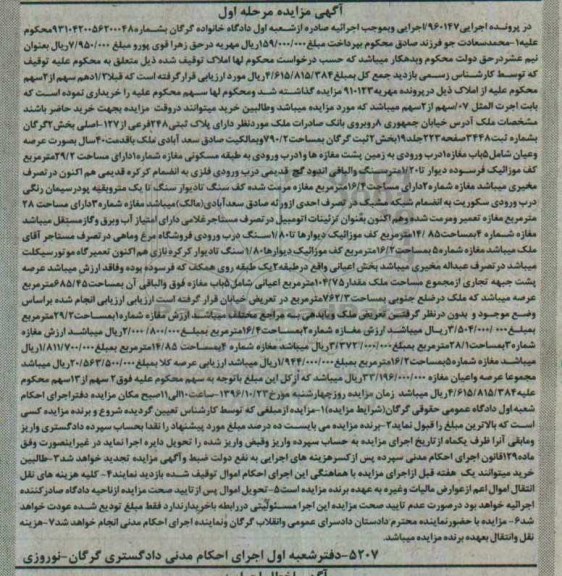 آگهی مزایده مرحله اول
در پرونده اجرایی۹۶۰۱۴۷/اجرایی وبموجب اجرائیه صادره ازشعبه اول دادگاه خانواده گرگان بشماره۹۳۱۰۴۲۰۰۵۶۲۰۰۰۴۸محکوم
علیه۱-محمدسعادت جو فرزند صادق محکوم بپرداخت مبلغ۱۵۹/۰۰۰/۰۰۰ریال مهریه درحق زهرا قوی پورو مبلغ ۷/۹۵۰/۰۰۰ ریال بعنوان
نیم عشردرحق دولت محکوم وبدهکار میباشد که حسب درخواست محکوم لها املاک توقیف شده ذیل متعلق به محکوم علیه توقیف
که توسط کارشناس رسمی بازدید جمع کل بمبلغ۴/۶۱۵/۸۱۵/۳۸۴ریال مورد ارزیابی قرارگرفته است که قبلا۱/۳دهم سهم از۲سهم
محکوم علیه از املاک ذیل درپرونده مهریه۹۱۰۱۲۳ مزایده گذاشته شدومحکوم لها سهم محکوم علیه را خریداری نموده است که
بابت اجرت المثل ۰۷/سهم از۲سهم میباشد که مورد مزایده میباشد وطالبین خرید میتوانند دروقت مزایده بجهت خرید حاضر باشند
مشخصات ملک آدرس خیابان جمهوری ۸روبروی بانک صادرات ملک موردنظر دارای پلاک ثبتی۲۴۸فرعی از۱۲۷-اصلی بخش۲گرگان
بشماره ثبت۳۴۴۸صفحه۲۲۳جلد۱۹بخش۲ثبت گرگان بمساحت۷۹۰/۲وبمالکیت صادق سعد آبادی ملک باقدمت۴۰سال بصورت عرصه
وعیان شامل۵باب مغازه۱درب ورودی به زمین پشت مغازه ها و۱درب ورودی به طبقه مسکونی مغازه شماره۱دارای مساحت ۲۹/۲مترمربع
کف موزائیک فرسوده دیوار تا۱/۲۰مترسنگ والباقی اندود گچ قدیمی درب ورودی فلزی به انضمام کرکره قدیمی هم اکنون در تصرف
مخیری میباشد مغازه شماره۲دارای مساحت۱۶/۴مترمربع مغازه مرمت شده کف سنگ نادیوار سنگ تا یک مترویقیه پودرسیمان رنگی
درب ورودی سکوریت به انضمام شبکه مشبک در تصرف احدی ازورثه صادق سعدآبادی(مالک)میباشد مغازه شماره ۳دارای مساحت ۲۸
مترمربع مغازه تعمیر ومرمت شده وهم اکنون بعنوان تزئینات اتومبیل در تصرف مستاجرغلامی دارای امتیاز آب وبرق وگازمستقل میباشد
مغازه شماره ۴بمساحت۱۴/۸۵مترمربع کف موزائیک دیوارها تا۱/۸۰سنگ درب ورودی فروشگاه مرغ وماهی در تصرف مستاجر آقای
ملک میباشد مغازه شماره۵ بمساحت۱۶/۲مترمربع کف موزائیک دیوارها۱/۸۰سنگ نادیوار کرکره نازی هم اکنون تعمیرگاه مو تورسیکلت
میباشد در تصرف عبداله مخیری میباشد بخش اعیانی واقع درطبقه۲یک طبقه روی همکف که فرسوده بوده وفاقد ارزش میباشد عرصه
پشت جبهه تجاری ازمجموع مساحت ملک مقدار۱۰۴/۷۵مترمربع اعیانی شامل۵باب مغازه فوق والباقی آن بمساحت۶۸۵/۴۵مترمربع
عرصه میباشد که ملک درضلع جنوبی بمساحت۷۶۲/۳مترمربع در تعریض خیابان قرار گرفته است ارزیابی ارزیابی انجام شده براساس
وضع موجود و بدون درنظر گرفتن تعریض ملک وبابدهی به مراجع مختلف میباشد ارزش مغازه شماره۱بمساحت۲۹/۲مترمربع
بمبلغ۳/۵۰۴/۰۰۰/۰۰۰ ریال میباشد ارزش مغازه شماره۲بمساحت۱۶/۴مترمربع بمبلغ۲/۰۰۰/۸۰۰/۰۰۰ریال میباشد ارزش مغازه
شماره۳بمساحت۲۸/۱مترمربع بمبلغ۳/۳۷۲/۰۰۰/۰۰۰ریال میباشد مغازه شماره ۴بمساحت ۱۴/۸۵ مترمربع بمبلغ۱/۸۱۱/۷۰۰/۰۰۰ریال
میباشد مغازه شماره۵بمساحت۱۶/۲مترمربع بمبلغ۱/۹۴۴/۰۰۰/۰۰۰ریال میباشد ارزیابی عرصه کلا بمبلغ۲۰/۵۶۳/۵۰۰/۰۰۰ریال میباشد
مجموعا عرصه واعیان مغازه ۳۳/۱۹۶/۰۰۰/۰۰۰ریال میباشد که ازکل این مبلغ باتوجه به سهم محکوم علیه فوق۲ سهم از۱۳سهم محکوم
علیه۴/۶۱۵/۸۱۵/۳۸۴ریال میباشد زمان مزایده روزچهارشنبه مورخ۱۳۹۶/۱۰/۲۳-ساعت۱۰الی۱۱صبح مکان مزایده دفتراجرای احکام
شعبه اول دادگاه عمومی حقوقی گرگان(شرایط مزایده)۱-مزایده ازمبلغی که توسط کارشناس تعیین گردیده شروع و برنده مزایده کسی
است که بالاترین مبلغ را قبول نماید۲-برنده مزایده می بایست ده درصد مبلغ مورد پیشنهاد را نقدا بحساب سپرده دادگستری واریز
ومابقی آنرا ظرف یکماه از تاریخ اجرای مزایده به حساب سپرده واریز وقبض واریز شده را تحویل دایره اجرا نماید در غیراینصورت وفق
ماده۱۲۹قانون اجرای احکام مدنی سپرده پس ازکسرهزینه های اجرایی به نفع دولت ضبط وآگهی مزایده تجدید خواهد شد۳-طالبین
خرید میتوانند یک هفته قبل ازاجرای مزایده با هماهنگی این اجرای احکام اموال توقیف شده بازدید نمایند۴- کلیه هزینه های نقل
انتقال اموال اعم ازعوارض مالیات وغیره به عهده برنده مزایده است۵-تحویل اموال پس ازتایید صحت مزایده ازناحیه دادگاه صادرکننده
اجرائیه خواهد بود درصورت عدم تایید صحت مزایده این اجرا مسئولیتی دررابطه باخریدارندارد فقط مبلغ تودیع شده عودت خواهد
شد۶- مزایده با حضورنماینده محترم دادستان دادسرای عمومی وانقلاب گرگان ونماینده اجرای احکام مدنی انجام خواهد شد۷-هزینه
نقل وانتقال بعهده برنده مزایده میباشد.
۵۲۰۷-دفترشعبه اول اجرای احکام مدنی دادگستری گرگان-نوروزی